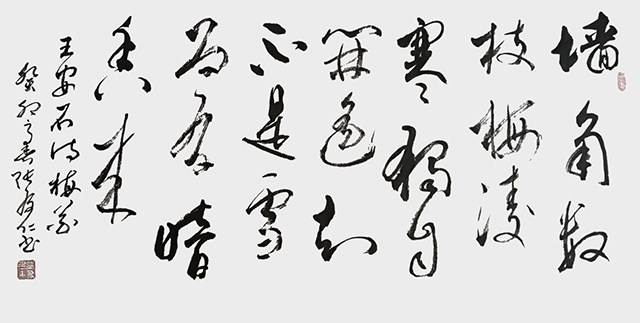 墙角数
枝梅凌
寒独自
開遥知
不是雪
为有暗
香来
王安石诗梅花
癸卯之春张仁书